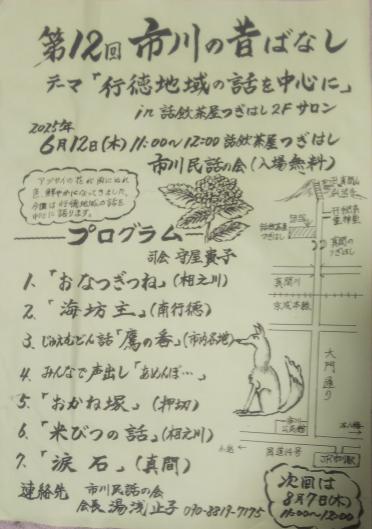 第12回 市川の昔ばなし
テーマ「行徳地域の話を中心に」
in 話飲茶屋つぎはし2Fサロン
2025年
6月12日(木) 11:00〜12:00 話飲茶屋つぎはし
市川民話の会(入場無料)
アジサイの花が雨にぬれ
色鮮やかになってきました。
今回は行徳地域の話を
中心に語ります。
プログラム
司会 守屋貴子
1.「おなつぎつね」(相之川)
2.「海坊主」(南行徳)
3. じゅえむどん話「鷹の香」(市内各地)
4. みんなで声出し「あめんぼ…」
5.「おかね塚」(押切)
6.「米びつの話」(相之川)
7.「涙石」(真間)
連絡先 市川民話の会
会長 湯浅止子 090-8819-7175
話飲茶屋
つぎはし
真間の
つぎはし
真間川
京成本線
大門通り
国道14号
JR市川駅
次回は
8月7日(木)
11:00〜12:00